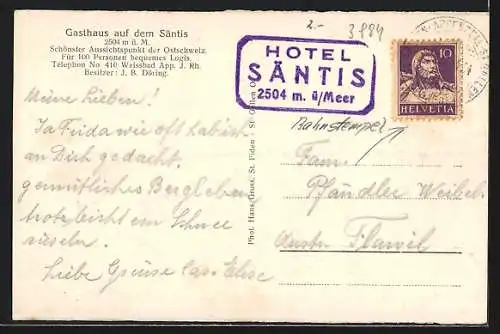 Gasthaus auf dem Säntis
2504 m ü. M.
Schönster Aussichtspunkt der Ostschweiz.
Für 100 Personen bequemes Logis.
Telephon No 410 Weissbad App. J. Rh.
Besitzer: J. B. Döring.
2.-
3984
HOTEL
SÄNTIS
2504 m. ü/Meer
10
HELVETIA
Bahnstempel
Meine Lieben!
Ja Frida wie oft hab ich
an Dich gedacht.
gemütliches Bergleben
trotz leicht em Schnee
rieseln.
Liebe Grüsse Elise
Phot. Hans Gross, St. Fiden - St. Gallen
Fam.
Pfändler Weibel
Flawil